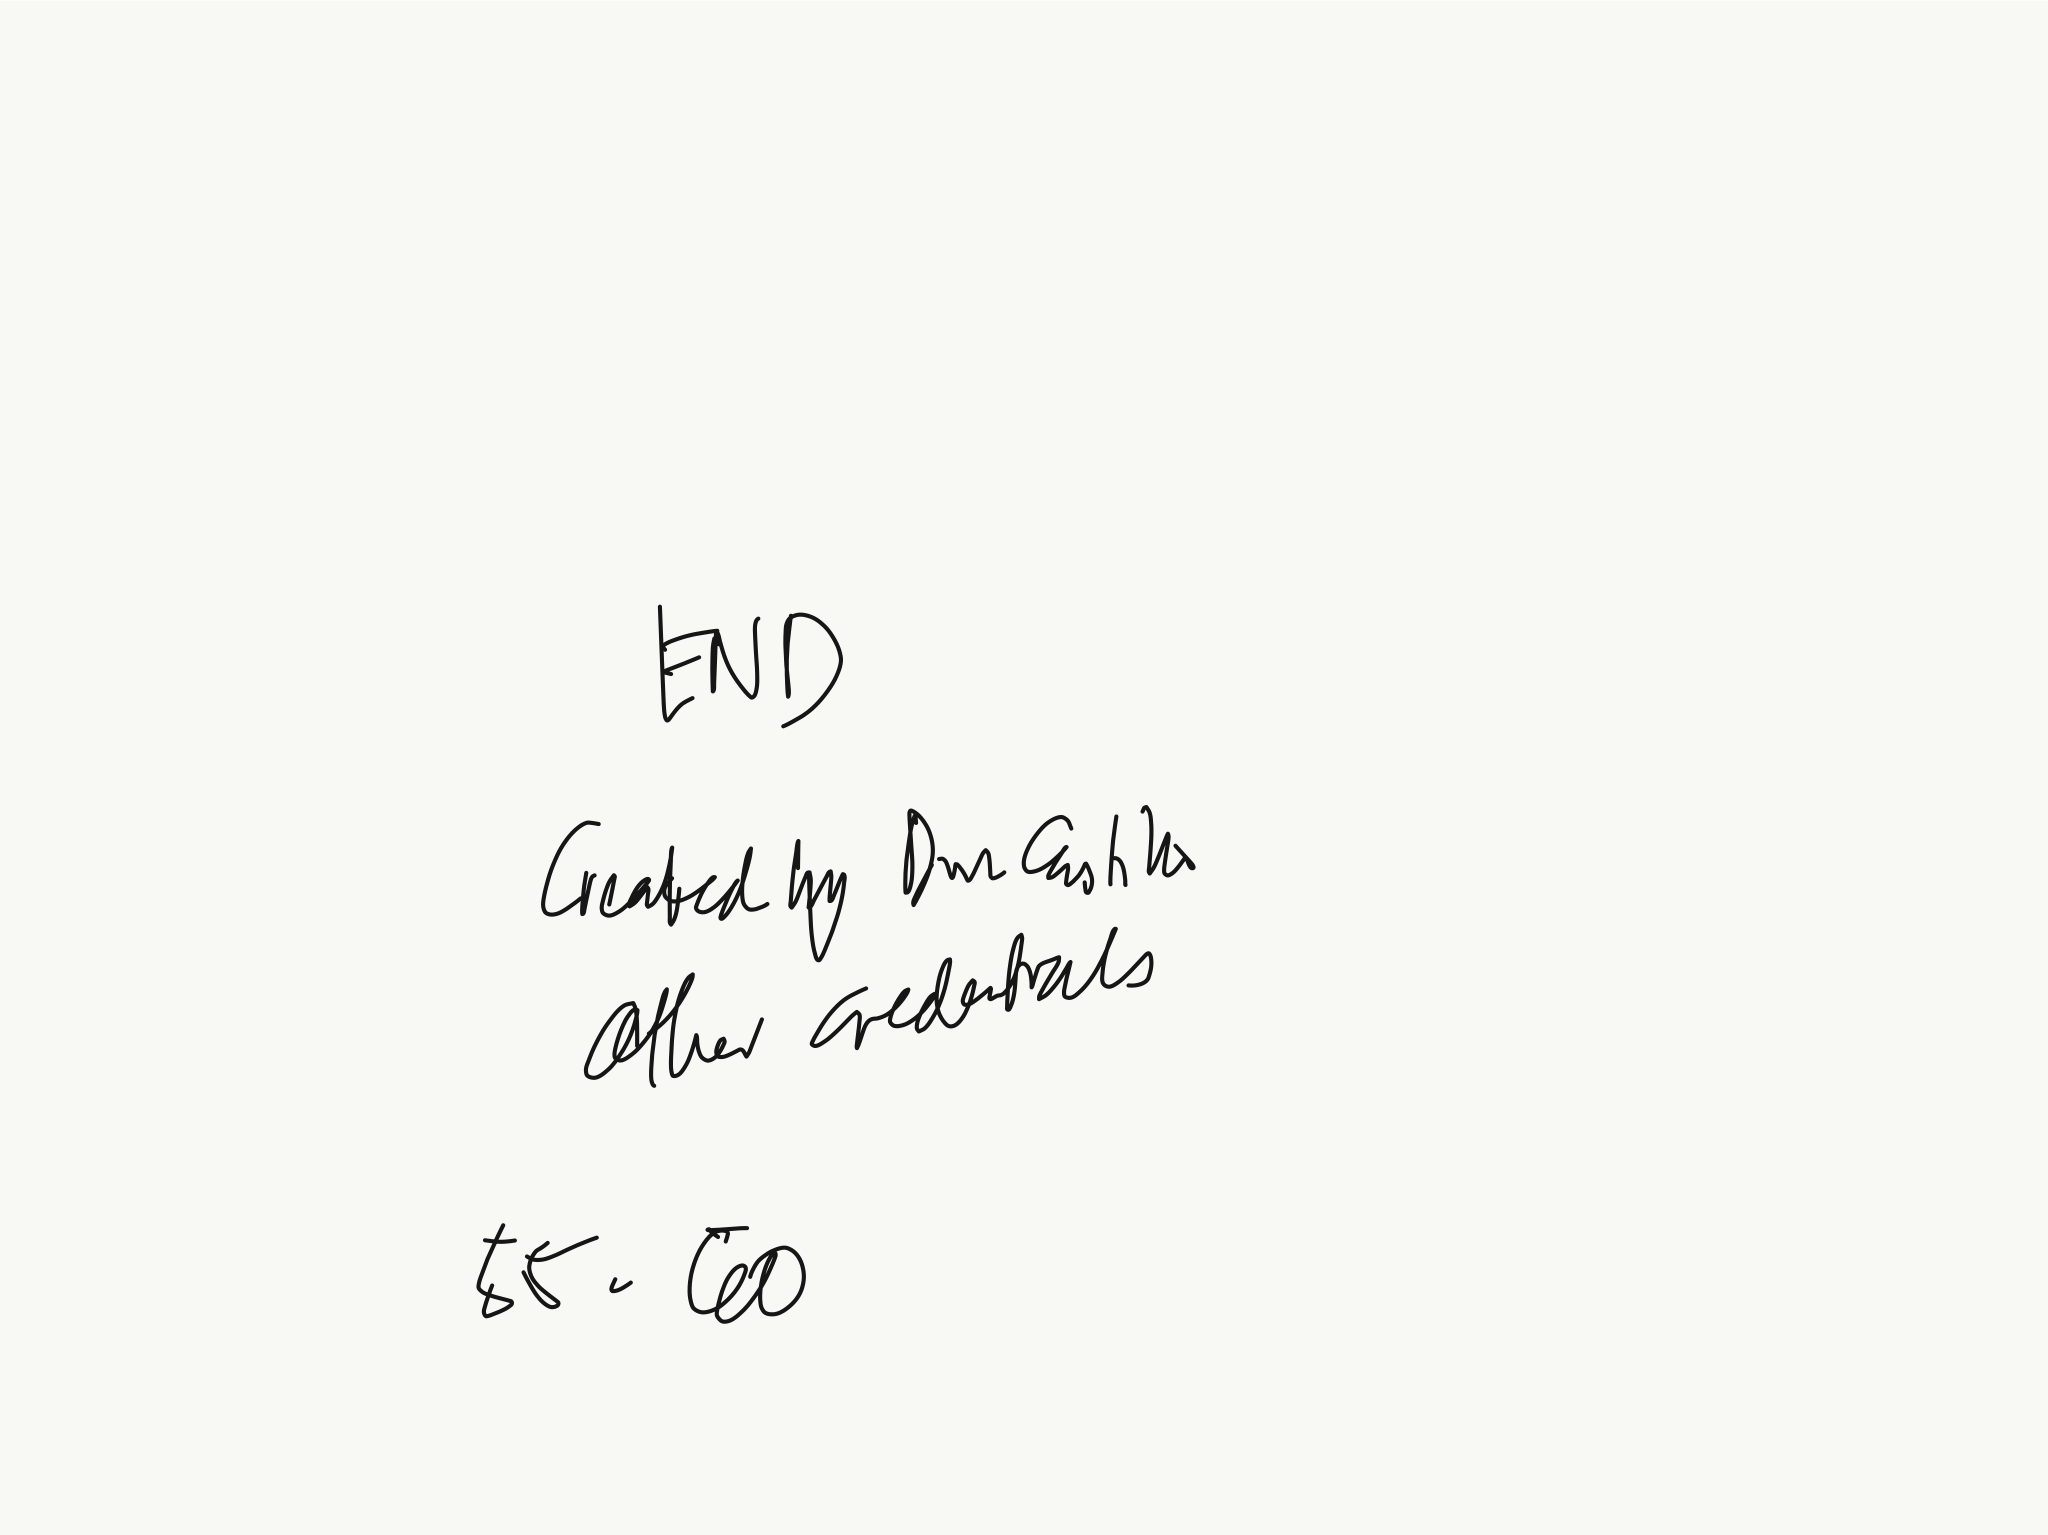 END
Created by Dan Castillo
Other credentials